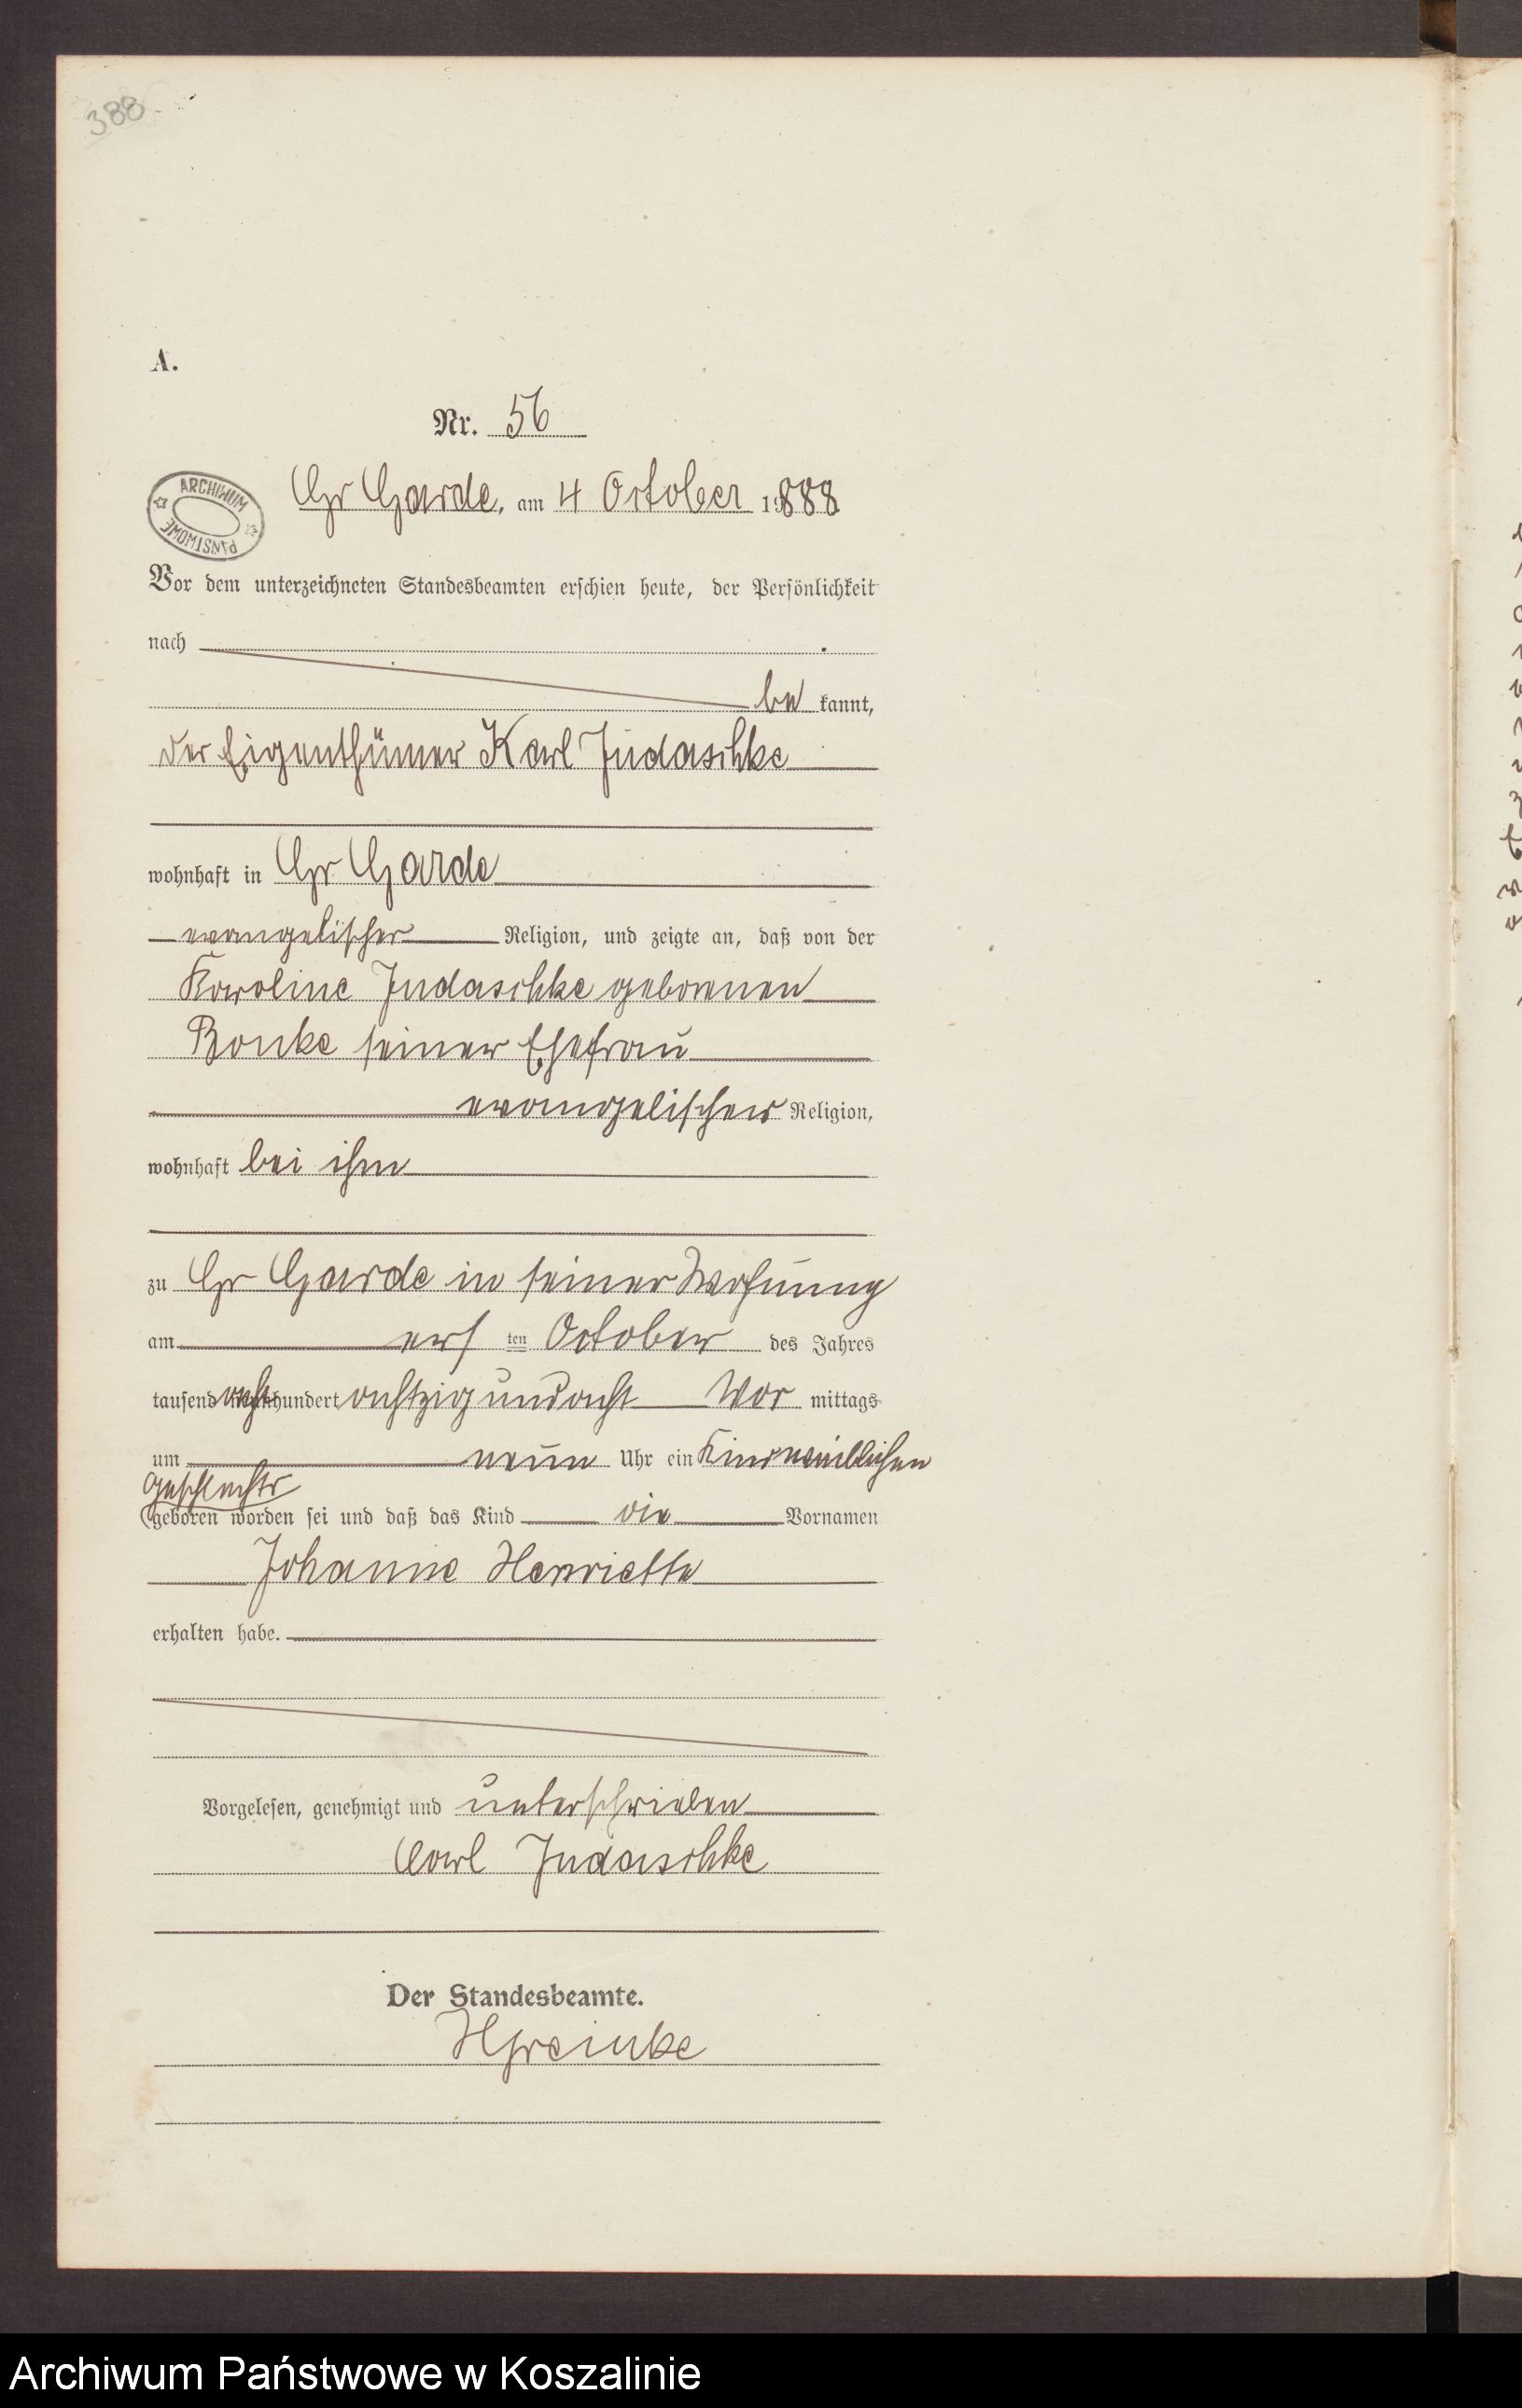 388.
A.
Nr. 56
ARCHIWUM PAŃSTWOWE
Gr Garde, am 4 October 1888
Vor dem unterzeichneten Standesbeamten erschien heute, der Persönlichkeit
nach
be kannt,
der Eigenthümer Karl Judaschke
wohnhaft in Gr Garde
evangelischer Religion, und zeigte an, daß von der
Karoline Judaschke geborenen
Bonke seiner Ehefrau
evangelischer Religion,
wohnhaft bei ihm
zu Gr Garde in seiner Wohnung
am ers ten October des Jahres
tausend acht hundert achtzig und acht Vor mittags
um neun Uhr ein Kind weiblichen
Geschlechts
geboren worden sei und daß das Kind die Vornamen
Johanne Henriette
erhalten habe.
Vorgelesen, genehmigt und unterschrieben
Carl Judaschke
Der Standesbeamte.
Archiwum Państwowe w Koszalinie